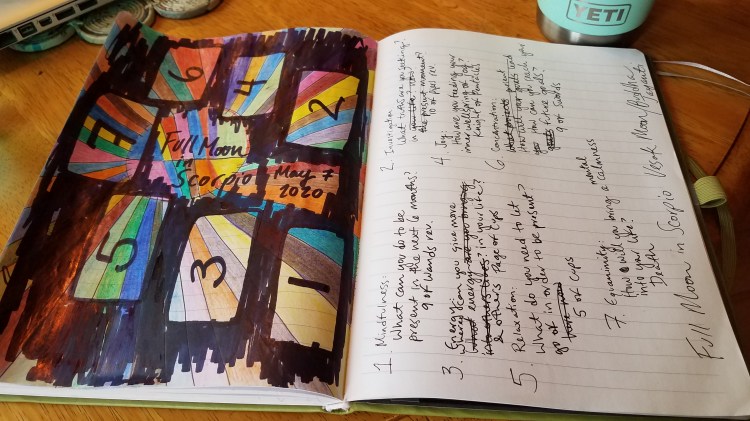 6
4
2
7
Full Moon
in
Scorpio
May 7
2020
5
3
1
1. Mindfulness:
What can you do to be
present in the next 6 months?
9 of Wands rev.
2. Investigation
What truths are you seeking?
in
the present moment?
10 of rev.
3. Energy:
Where can you give more
energy in your life?
& others Page of Cups
4. Joy:
How are you feeding your
inner wellspring of joy?
Knight of Pentacles
5. Relaxation:
What do you need to let
go of in order to be present?
5 of cups
6. Concentration:
How will your past
you how can you reach your
future goals?
9 of Swords
7. Equanimity:
How will you bring a calmness
mental
into your life?
Death
Full Moon in Scorpio Vesak Moon/Buddha
YETI